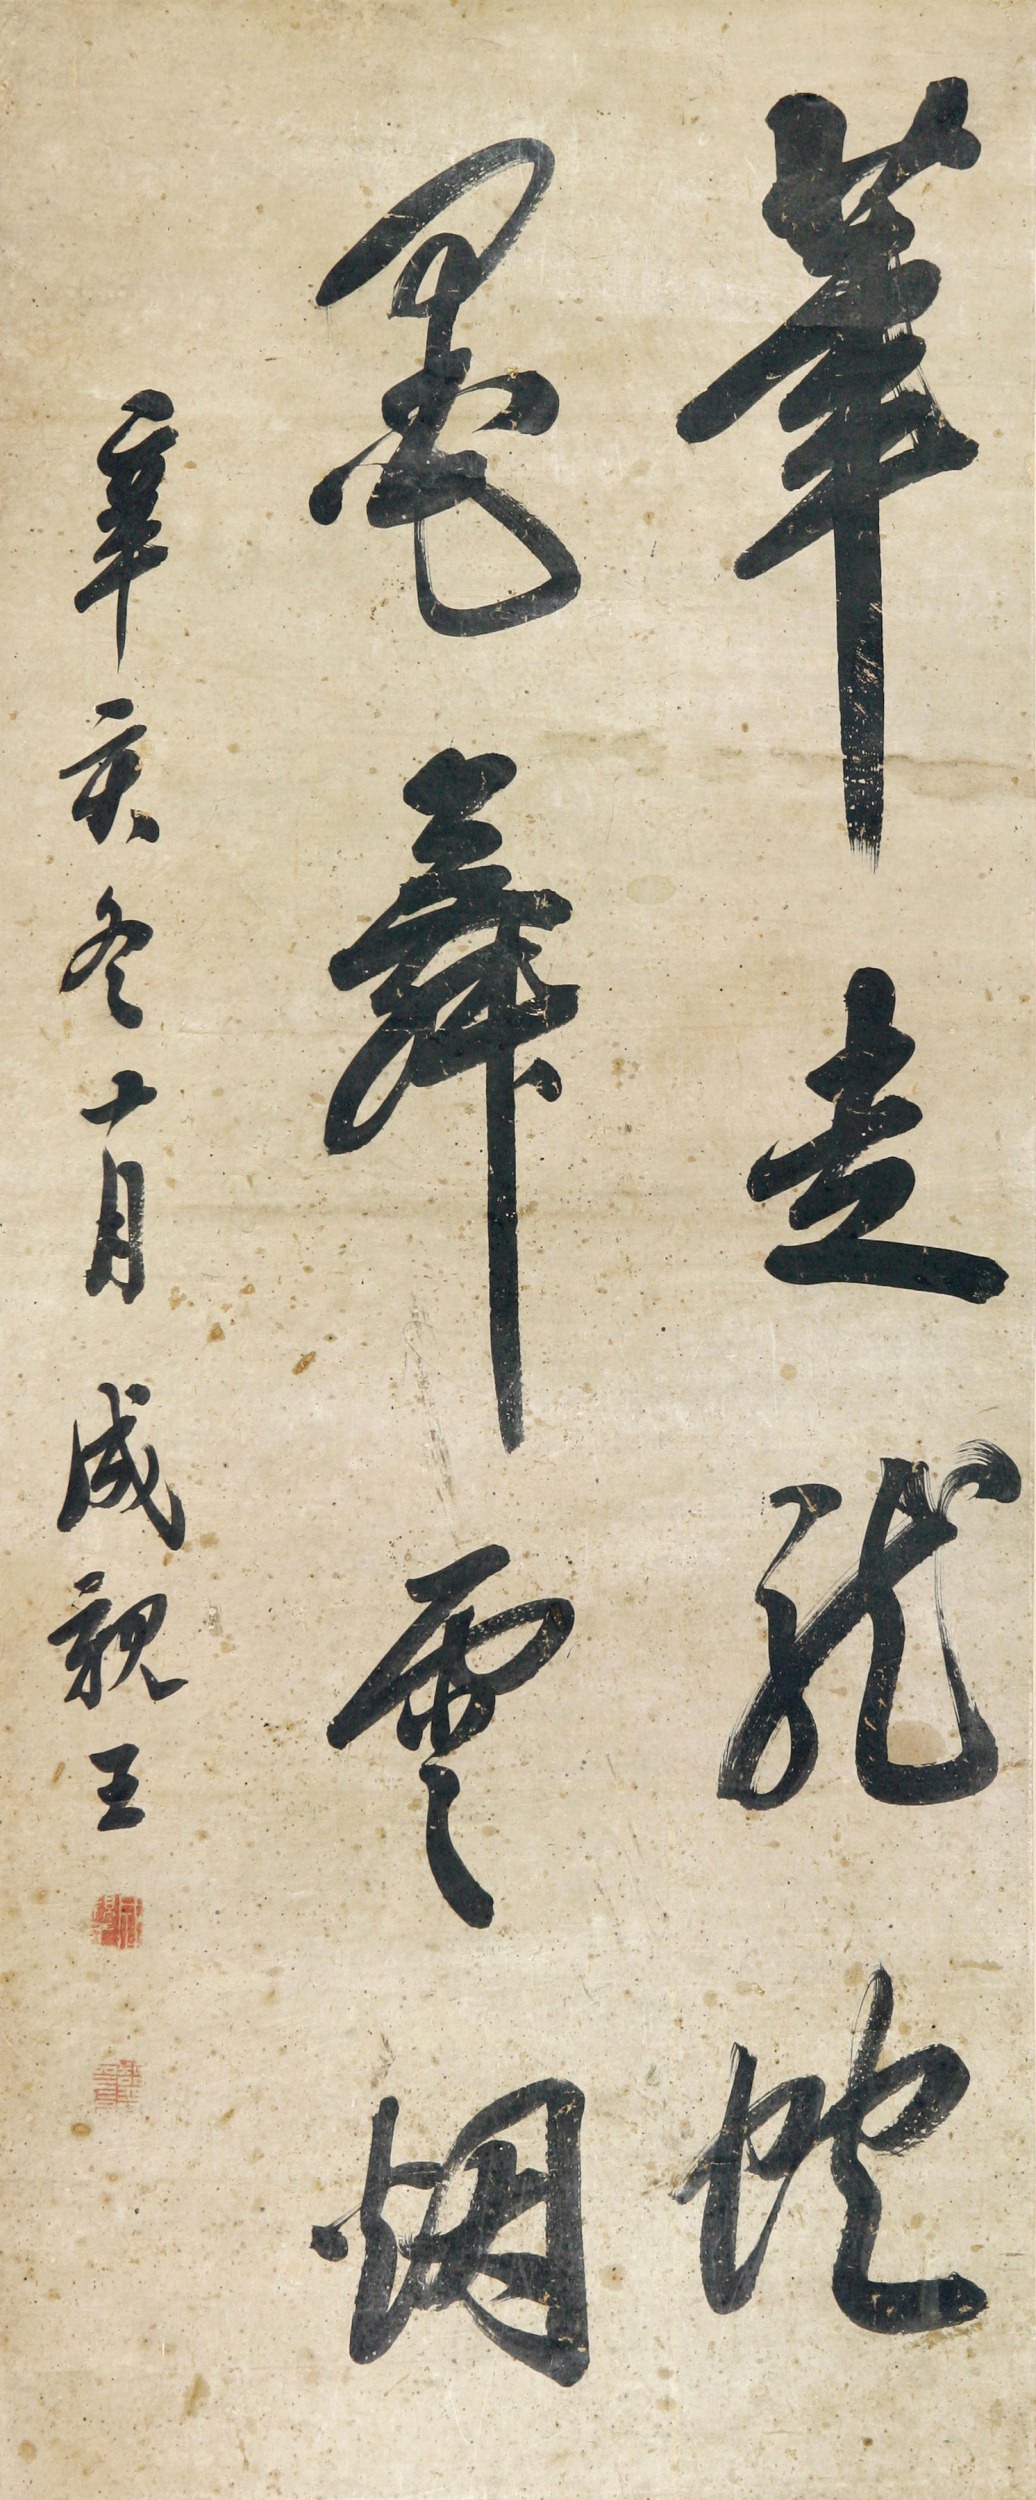 筆走龍蛇
墨舞雲烟
辛亥冬十月 成親王